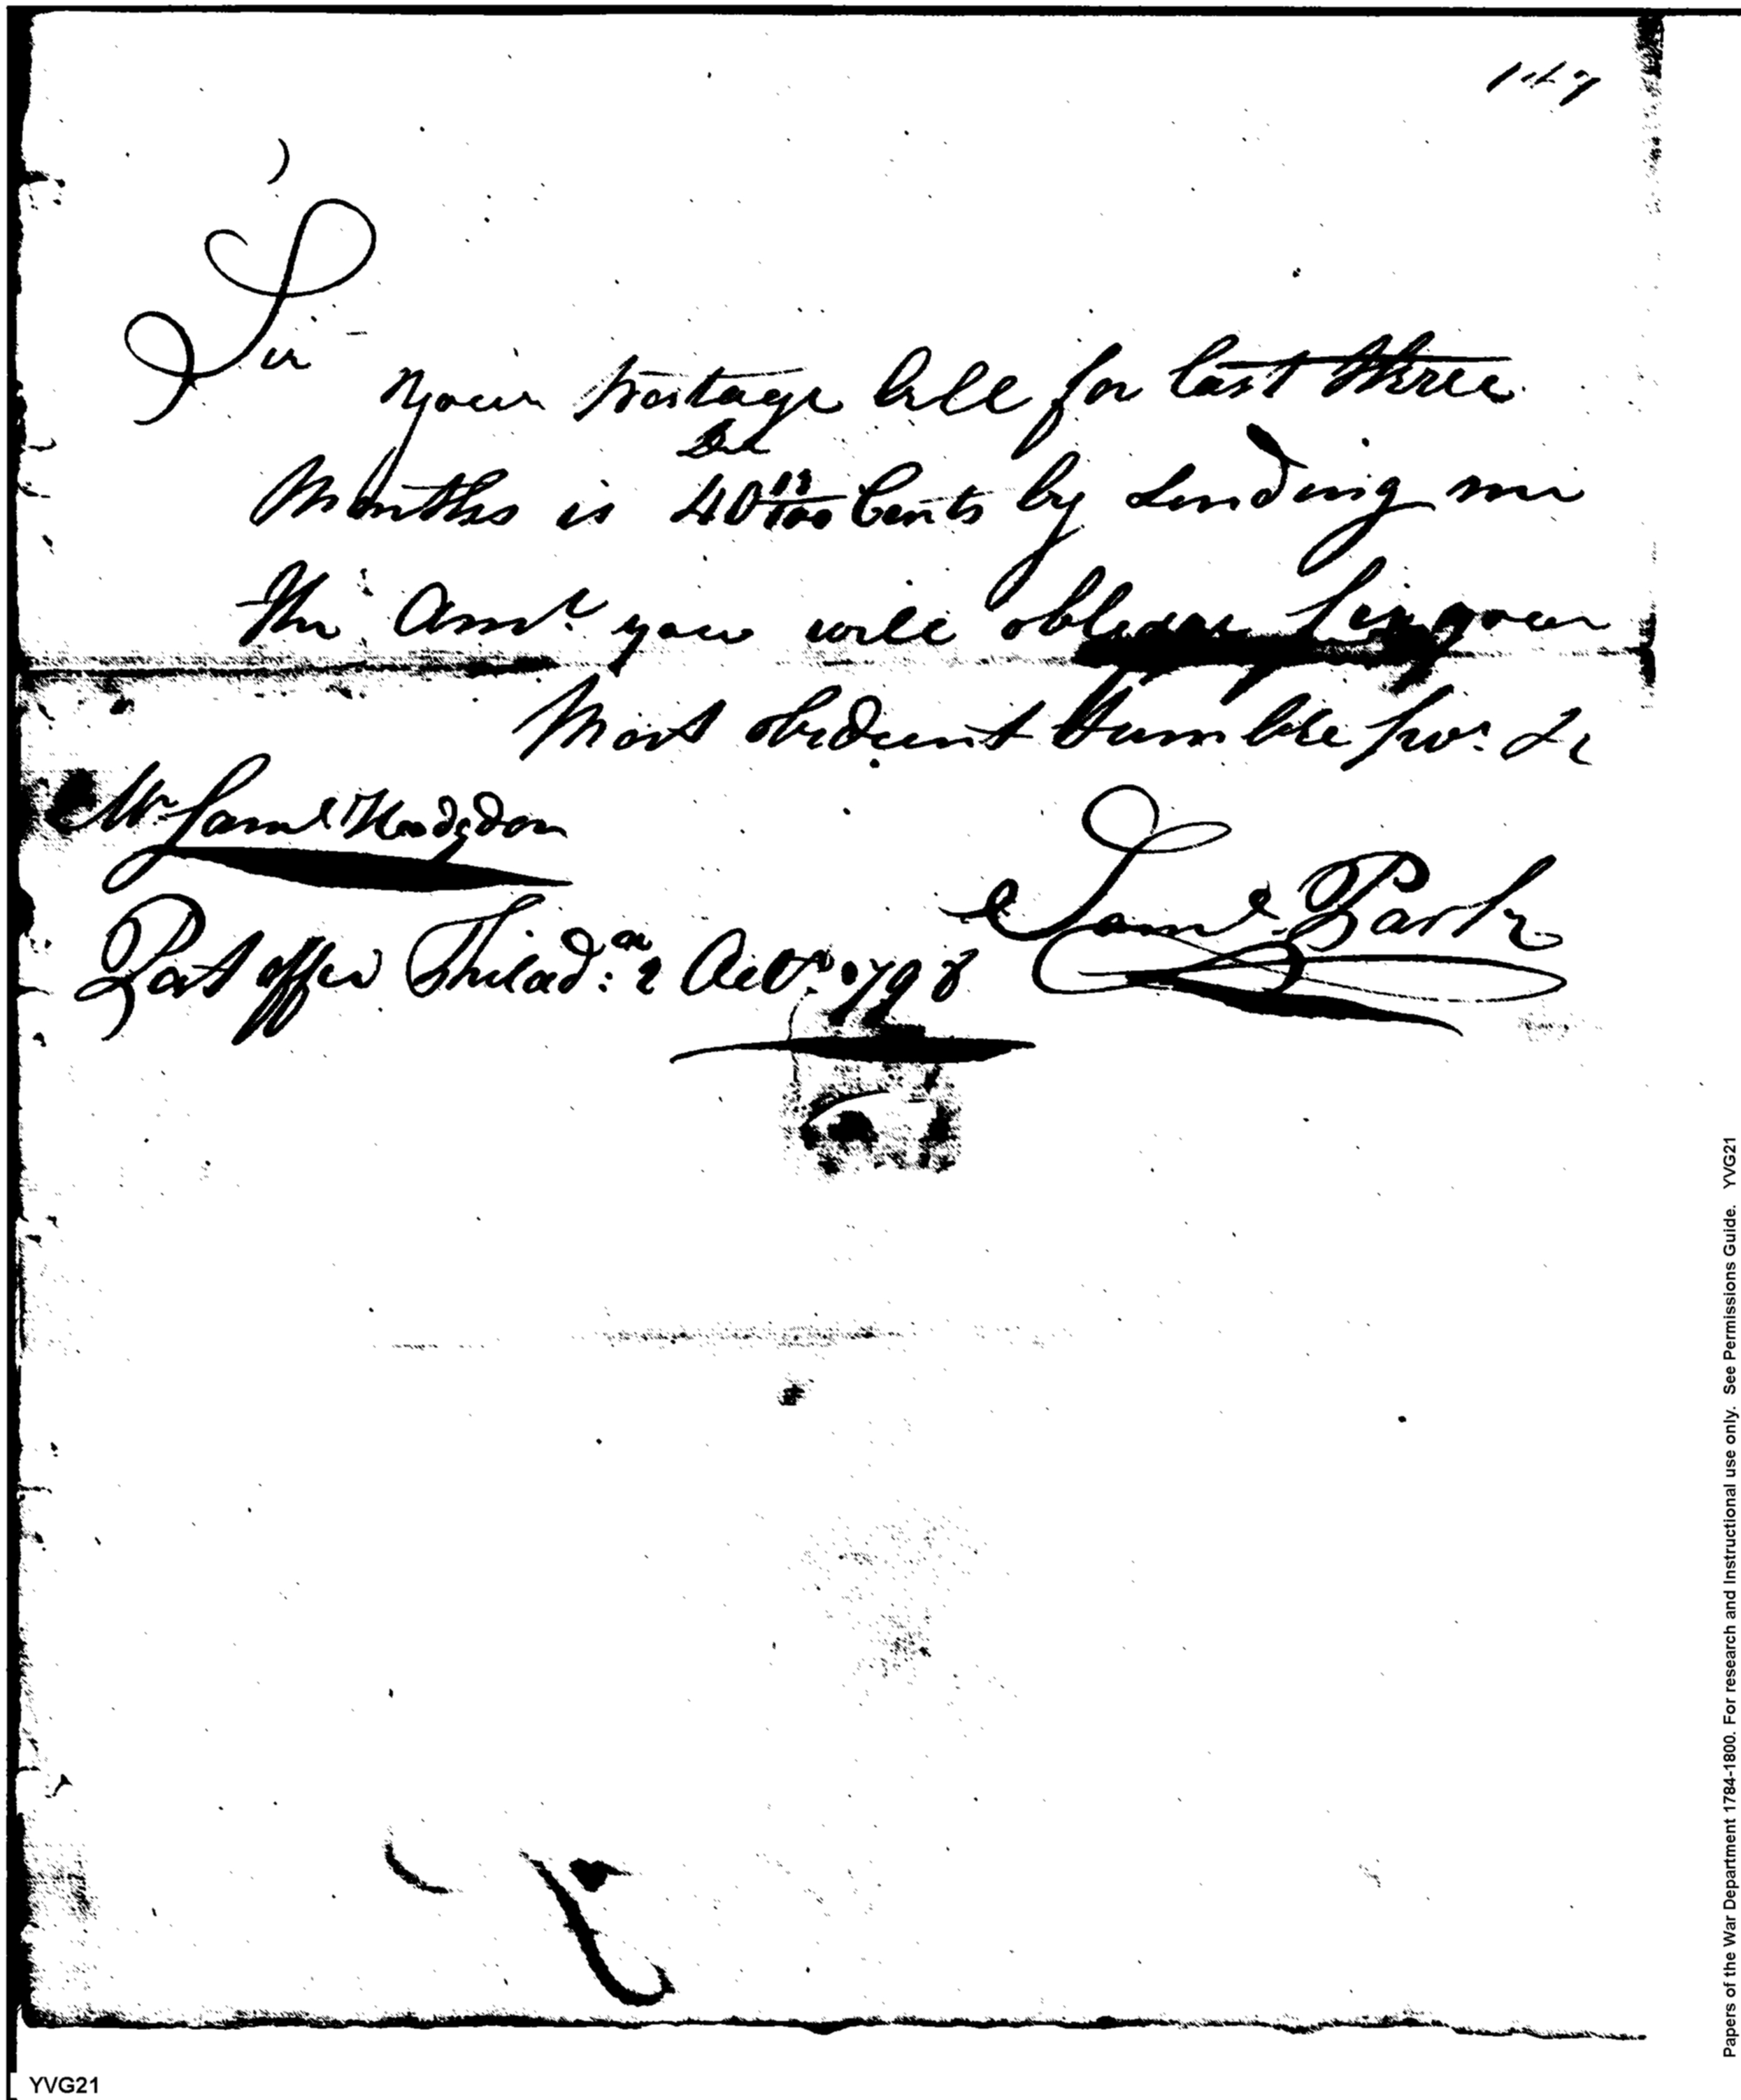 147
Sir
your postage bill for last three
Months is 40 13/100 Cents by Sending me
Dol
the Amt. you will obliege Sir your
Most obedient Humble Sert. &c
Mr Saml Hodgdon
Saml. Park
Post office Philada: 2 Octr. 1798
Papers of the War Department 1784-1800. For research and Instructional use only. See Permissions Guide. YVG21
YVG21